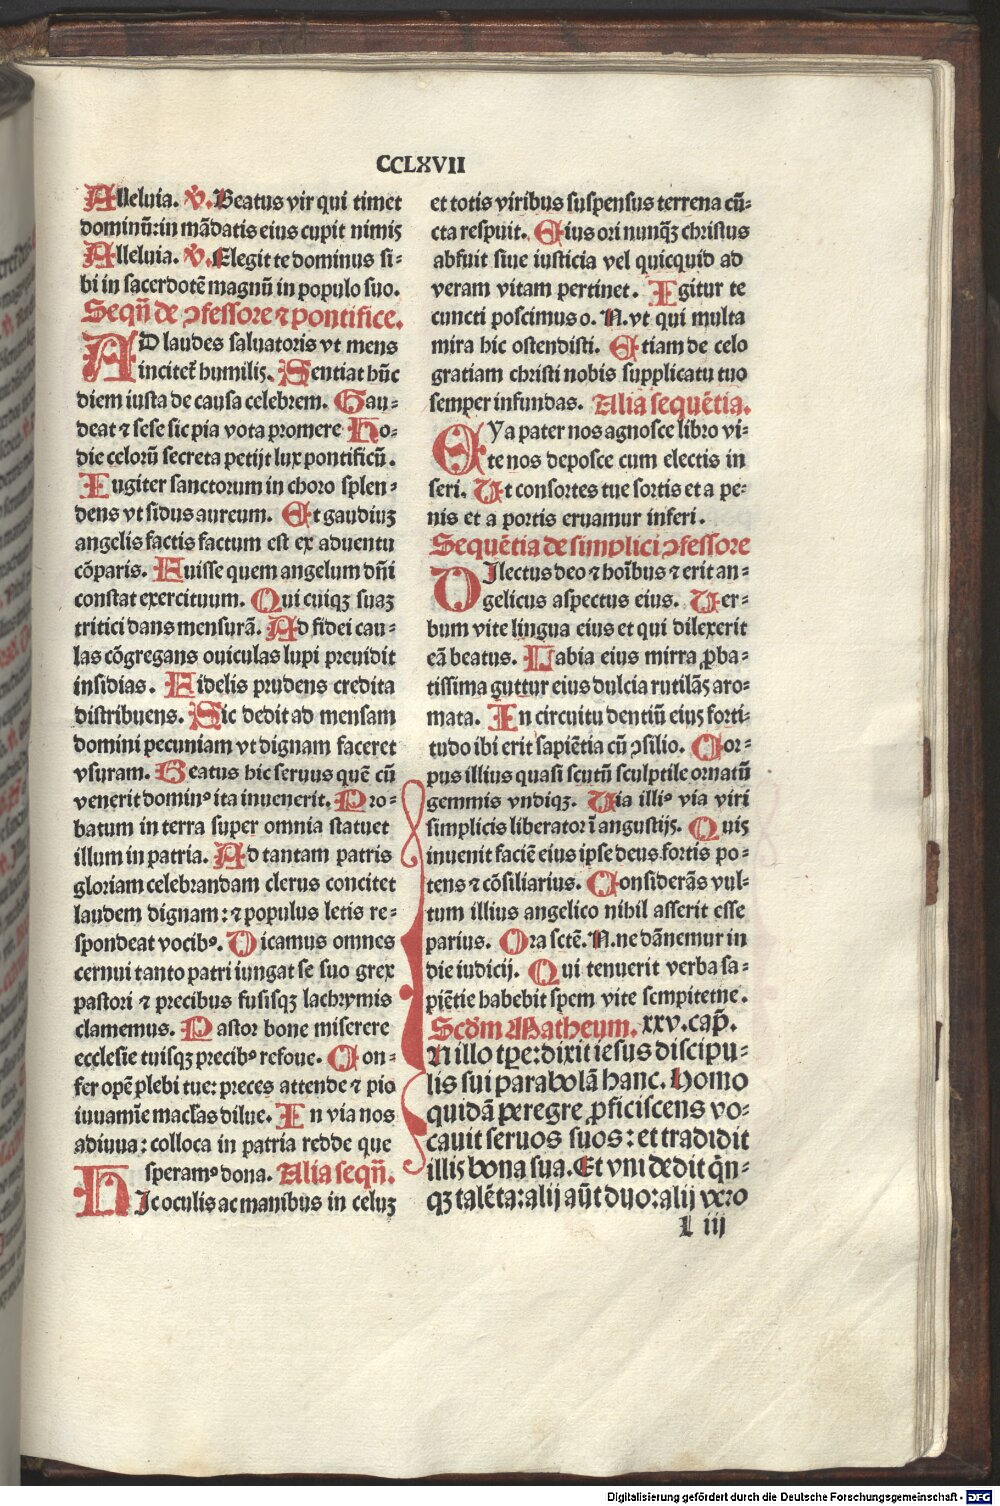 CCLXVII
Alleluia. ℣. Beatus vir qui timet
dominū: in mādatis eius cupit nimis
Alleluia. ℣. Elegit te dominus si⸗
bi in sacerdotē magnū in populo suo.
Seqn̄ de ↄfessore ⁊ pontifice.
AD laudes saluatoris vt mens
incitet̄ humilis. Sentiat hūc
diem iusta de causa celebrem. Gau⸗
deat ⁊ sese sic pia vota promere Ho⸗
die celorū secreta petijt lux pontificū.
Iugiter sanctorum in choro splen⸗
dens vt sidus aureum. Et gaudiuꝫ
angelis factis factum est ex aduentu
cōparis. Fuisse quem angelum dn̄i
constat exercituum. Qui cuiqꝫ suaꝫ
tritici dans mensurā. Ad fidei cau⸗
las cōgregans ouiculas lupi preuidit
insidias. Fidelis prudens credita
distribuens. Sic dedit ad mensam
domini pecuniam vt dignam faceret
vsuram. Beatus hic seruus quē cū
venerit dominꝰ ita inuenerit. Pro⸗
batum in terra super omnia statuet
illum in patria. Ad tantam patris
gloriam celebrandam clerus concitet
laudem dignam: ⁊ populus letis re⸗
spondeat vocibꝰ. Dicamus omnes
cernui tanto patri iungat se suo grex
pastori ⁊ precibus fusisqꝫ lachrymis
clamemus. Pastor bone miserere
ecclesie tuisqꝫ precibꝰ refoue. Con⸗
fer opē plebi tue: preces attende ⁊ pio
iuuamīe macl̄as dilue. In via nos
adiuua: colloca in patria redde que
speramꝰ dona. Alia seqn̄.
HIc oculis ac manibus in celuꝫ
et totis viribus suspensus terrena cū⸗
cta respuit. Eius ori nunqꝫ christus
abfuit siue iusticia vel quicquid ad
veram vitam pertinet. Igitur te
cuncti poscimus o. N. vt qui multa
mira hic ostendisti. Etiam de celo
gratiam christi nobis supplicatu tuo
semper infundas. Alia sequētia.
EYa pater nos agnosce libro vi⸗
te nos deposce cum electis in
seri. Ut consortes tue sortis et a pe⸗
nis et a portis eruamur inferi.
Sequētia de simplici ↄfessore
DIlectus deo ⁊ hoībus ⁊ erit an⸗
gelicus aspectus eius. Uer⸗
bum vite lingua eius et qui dilexerit
eā beatus. Labia eius mirra ꝓba⸗
tissima guttur eius dulcia rutilās aro⸗
mata. In circuitu dentiū eius forti⸗
tudo ibi erit sapiētia cū ↄsilio. Cor⸗
pus illius quasi scutū sculptile ornatū
gemmis vndiqꝫ. Uia illiꝰ via viri
simplicis liberator ī angustijs. Quis
inuenit faciē eius ipse deus fortis po⸗
tens ⁊ cōsiliarius. Considerās vul⸗
tum illius angelico nihil asserit esse
parius. Ora sctē. N. ne dānemur in
die iudicij. Qui tenuerit verba sa⸗
piētie habebit spem vite sempiterne.
Scd̄m Matheum. xxv. cap̄.
In illo tꝑe: dixit iesus discipu⸗
lis sui parabolā hanc. Homo
quidā peregre ꝓficiscens vo⸗
cauit seruos suos: et tradidit
illis bona sua. Et vni dedit qn̄⸗
qꝫ talēta: alij aūt duo: alij vero
L iij
Digitalisierung gefördert durch die Deutsche Forschungsgemeinschaft - DFG